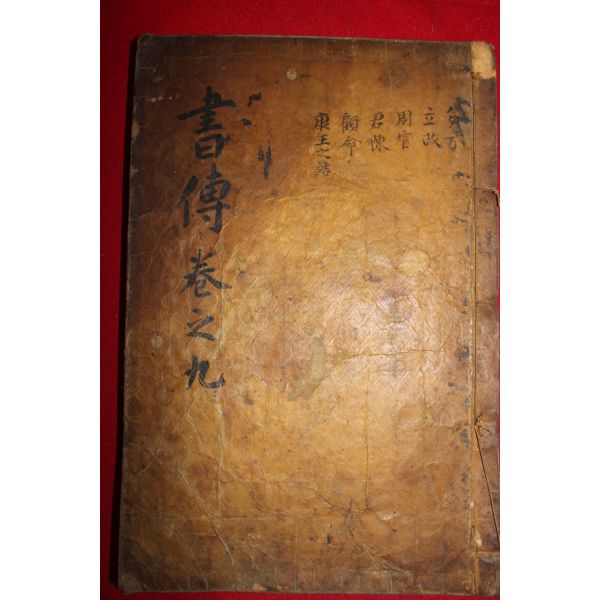 立政
周官
君陳
顧命
康王之誥
書傳 卷之九